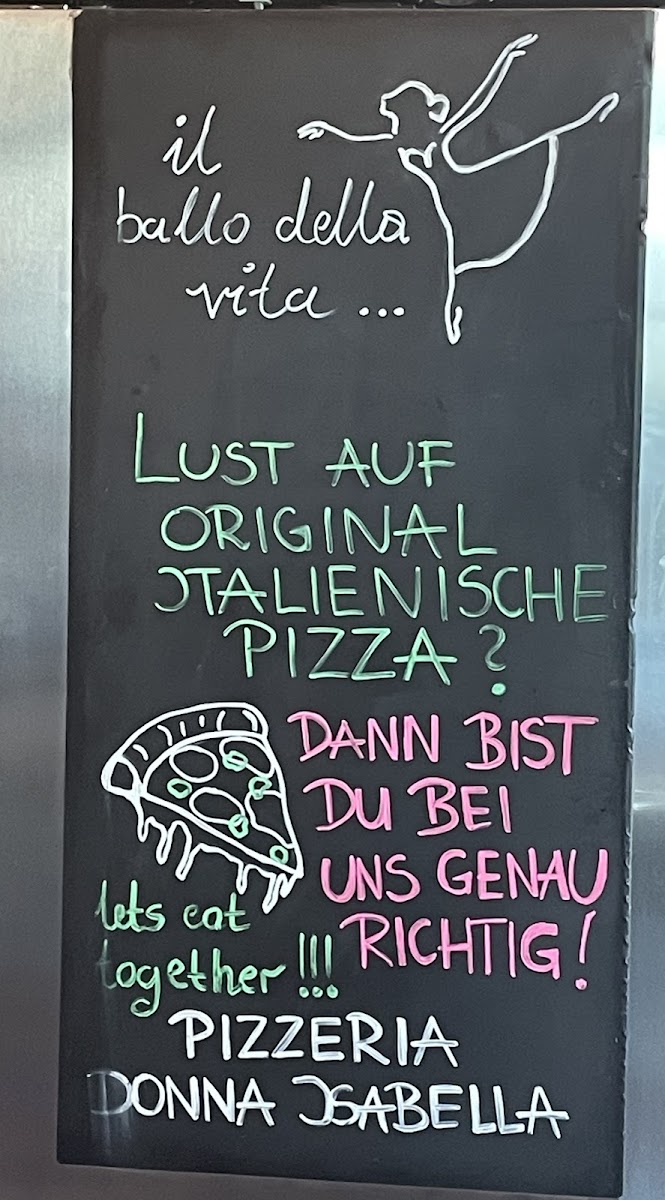 il
ballo della
vita ...
LUST AUF
ORIGINAL
ITALIENISCHE
PIZZA?
DANN BIST
DU BEI
UNS GENAU
RICHTIG!
lets eat
together!!!
PIZZERIA
DONNA ISABELLA